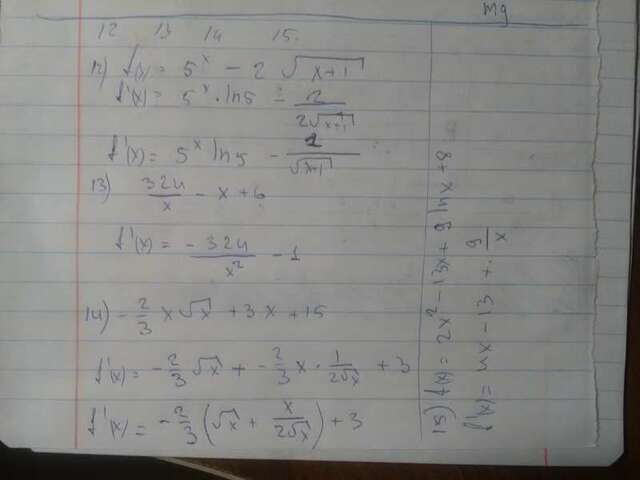 mg
12 13 14 15.
12) f(x) = 5^x - 2 √(x+1)
f'(x) = 5^x · ln5 - 2/(2√(x+1))
f'(x) = 5^x ln5 - /√(x+1)
13) 324/x - x + 6
f'(x) = -324/x² - 1
14) -2/3 x√x + 3x + 15
f'(x) = -2/3 √x + -2/3 x · 1/(2√x) + 3
f'(x) = -2/3 (√x + x/(2√x)) + 3
15) f(x) = 2x² - 13x + 9 ln x + 8
f'(x) = 4x - 13 + 9/x